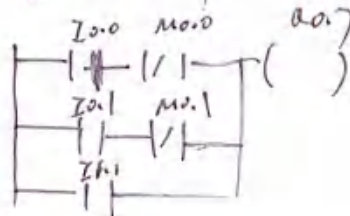 I0.0 M0.0 Q0.7
I0.1 M0.1
I1.1